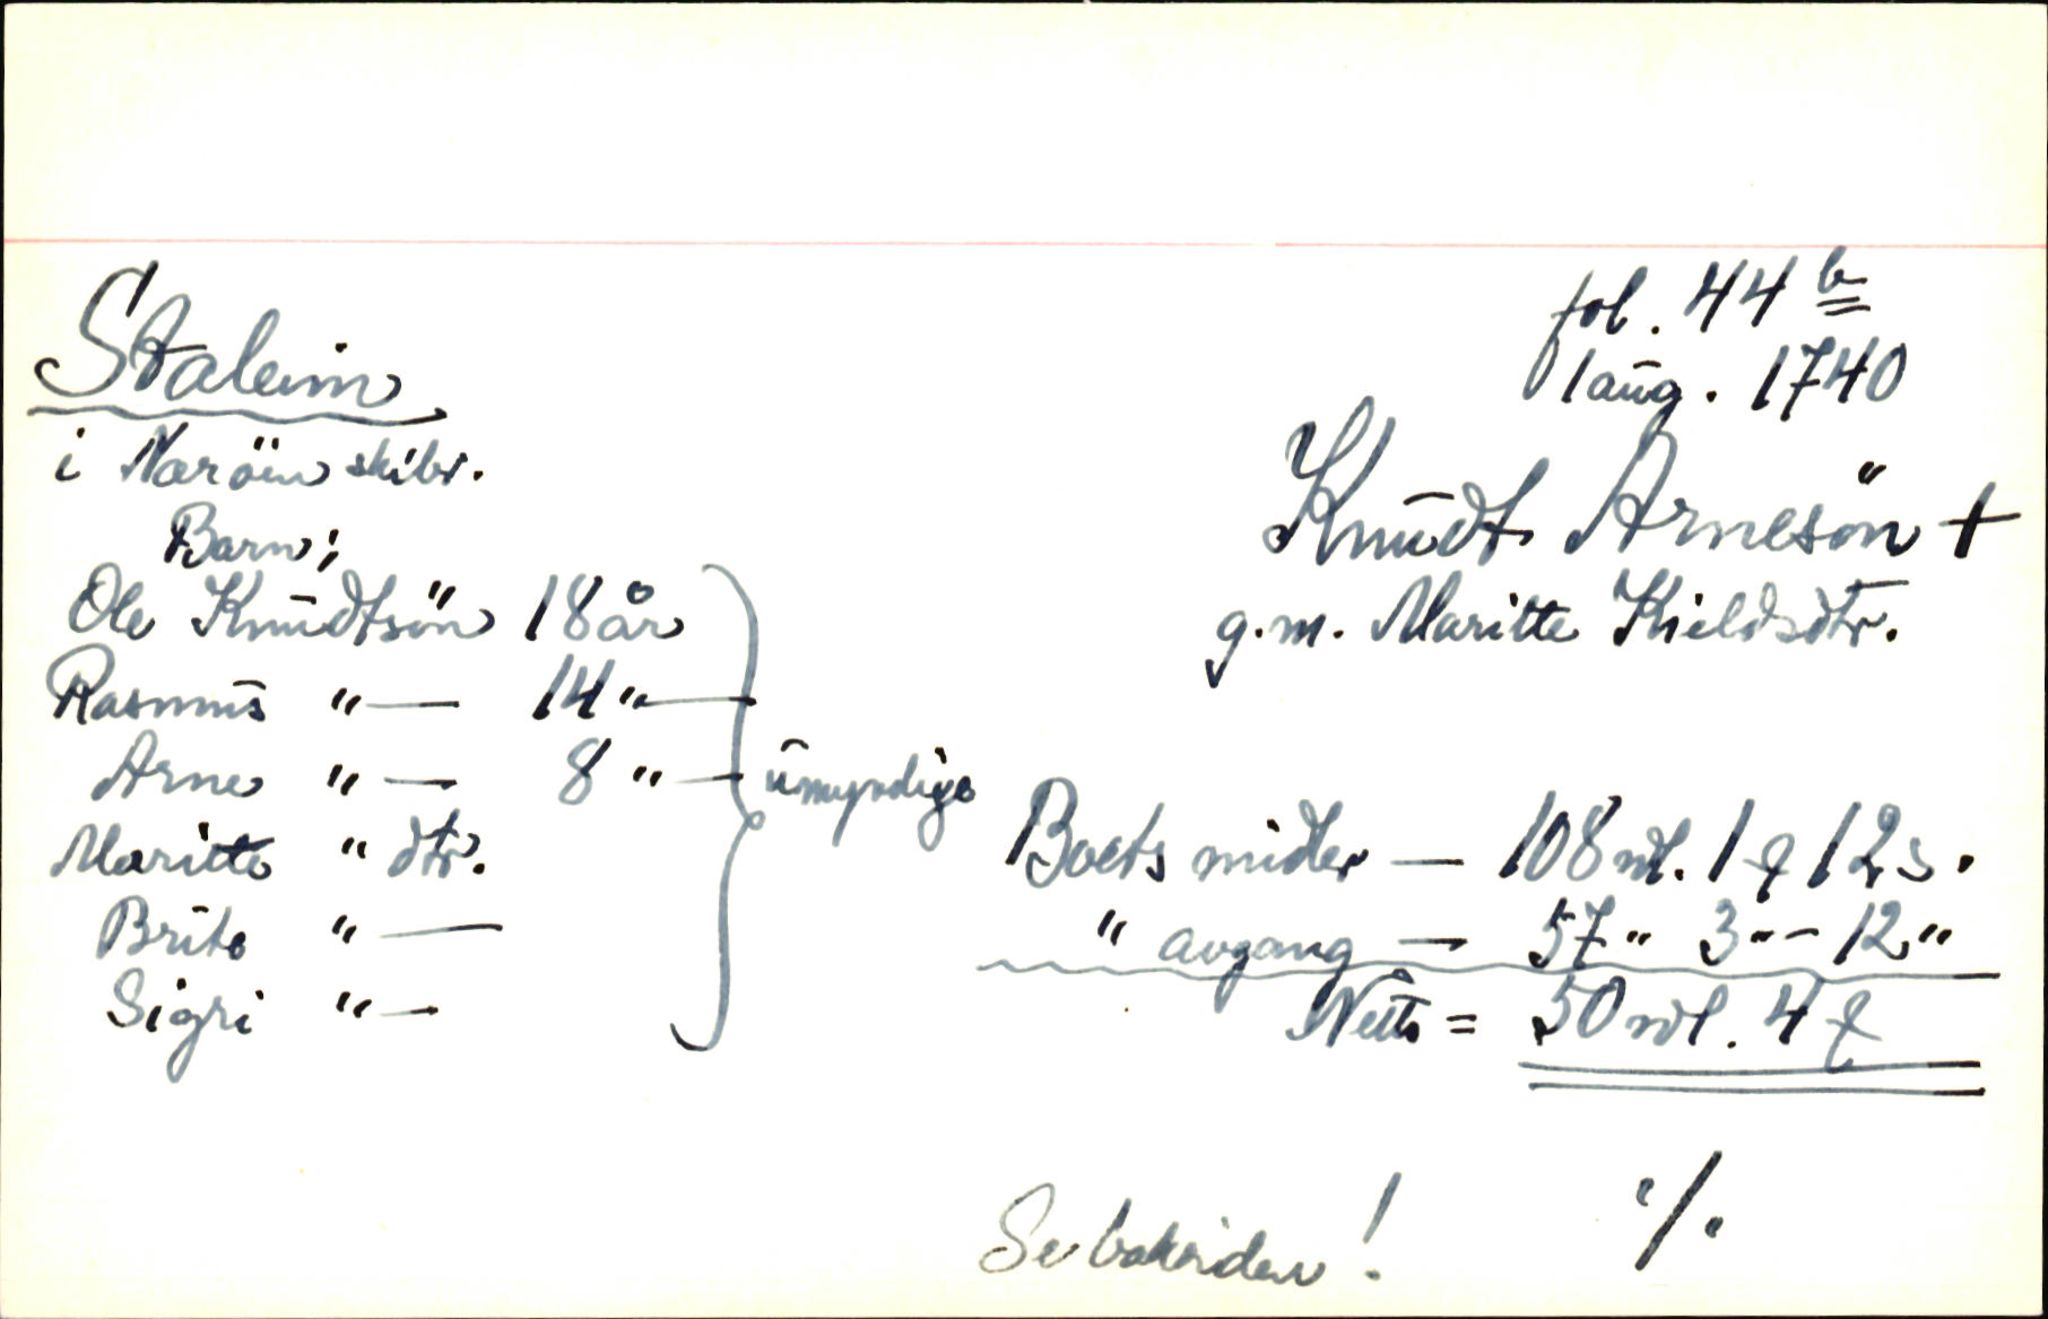 Staleim
i Naröen skibr.
fol. 44 b
1 aug. 1740
Knudt Arnesön +
g.m. Maritte Kieldsdtr.
Barn;
Ole Knudtsön 18 år
Rasmus "— 14 "—
Arne "— 8 "— umyndige
Maritte " dtr.
Brite "—
Sigri "—
Boets midler — 108 rdl. 1 ƒ 12 s.
" avgang — 57 " 3 "– 12 "
Netto = 50 rdl. 4 ƒ
Se baksiden! ·/.